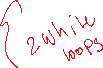 2 while
loops